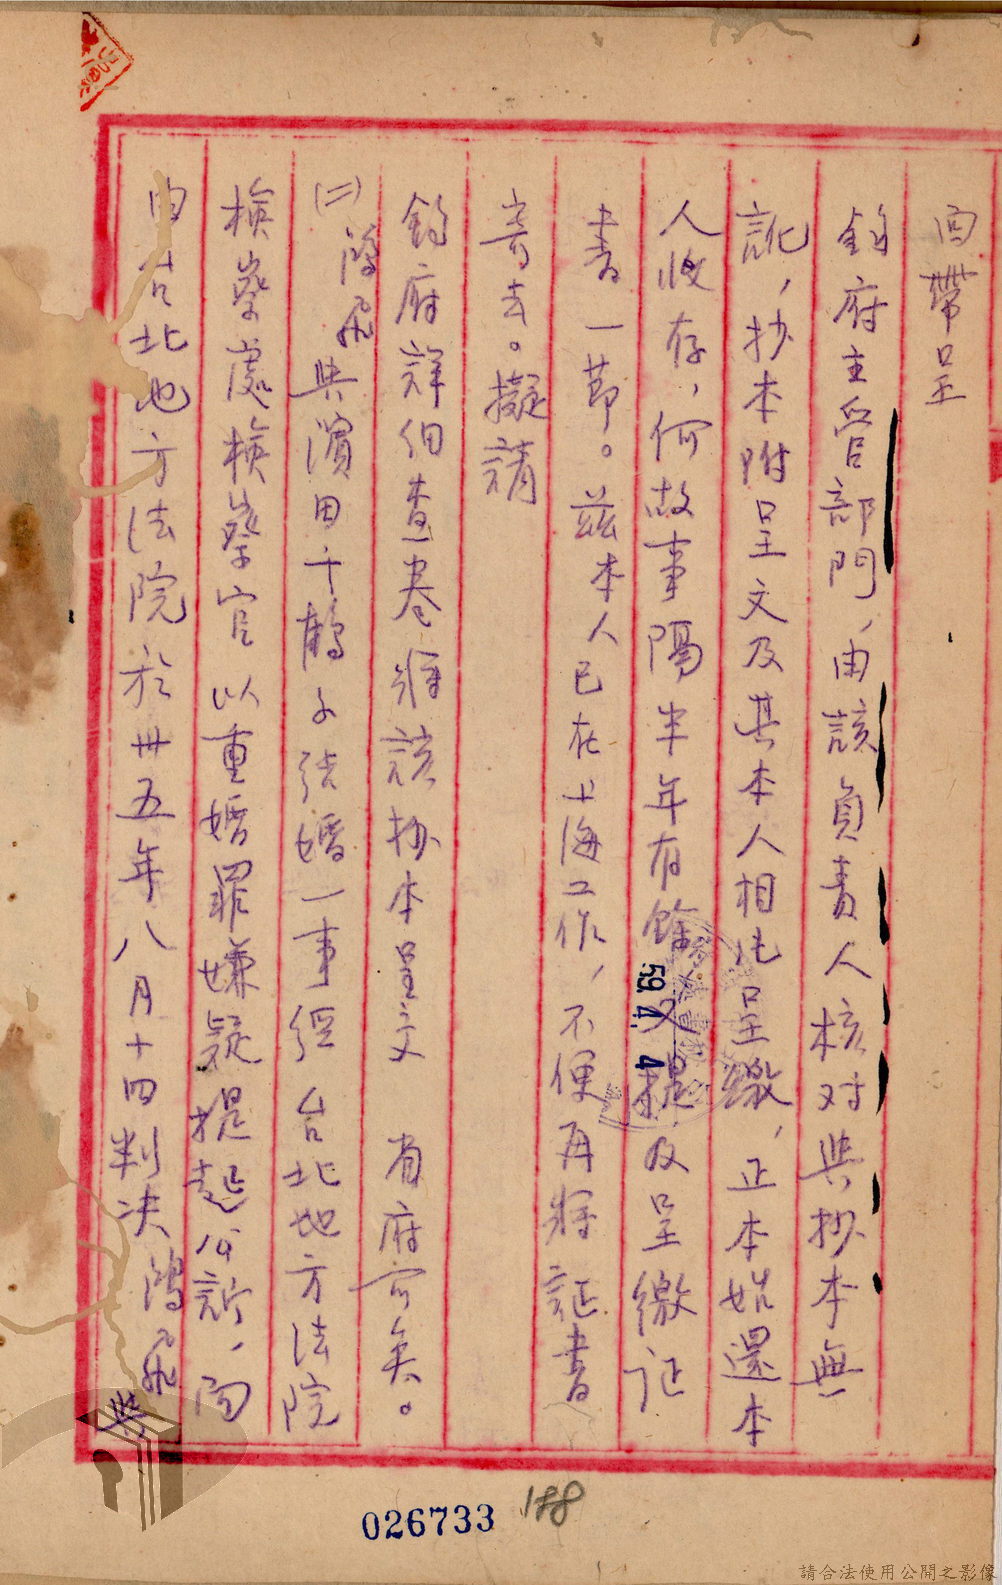 面帶呈
鈞府主管部門，由該負責人核对與抄本無
訛，抄本附呈文及其本人相片呈繳，正本始還本
人收存，何故事隔半年有餘又提及呈繳証
書一節。茲本人已在上海工作，不便再將証書
寄去。擬請
鈞府詳細查卷將該抄本呈文 省府可矣。
(二)鴻飛與濱田千鶴子結婚一事經 台北地方法院
檢察處檢察官以重婚罪嫌疑提起公訴，
由台北地方法院於卅五年八月十四判決鴻飛與
59.4.4
026733
188
請合法使用公開之影像